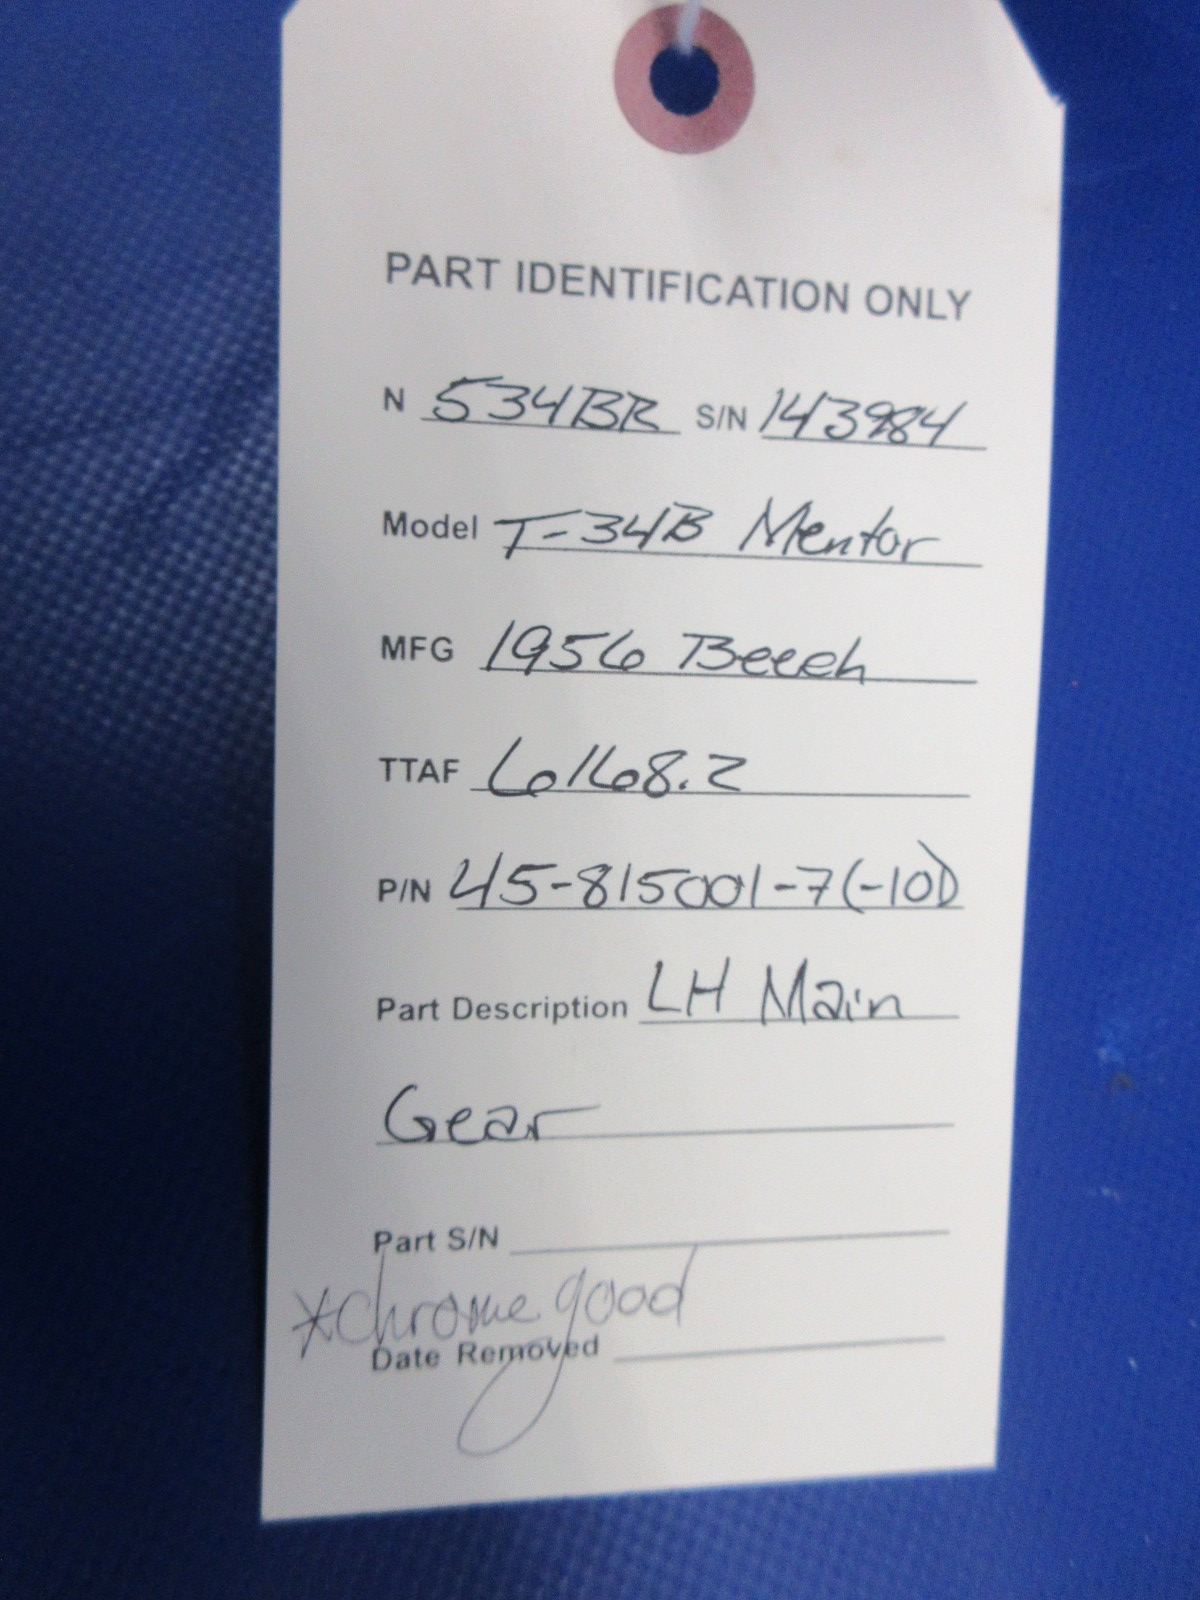 PART IDENTIFICATION ONLY
N 534BR S/N 143984
Model T-34B Mentor
MFG 1956 Beech
TTAF 6168.2
P/N 45-815001-7(-10)
Part Description LH Main
Gear
Part S/N
*chrome good
Date Removed